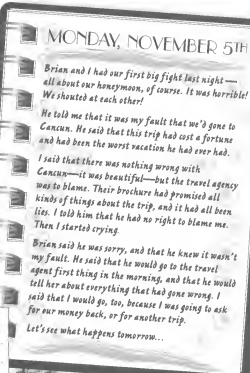 MONDAY, NOVEMBER 5TH
Brian and I had our first big fight last night—
all about our honeymoon, of course. It was horrible!
We shouted at each other!
He told me that it was my fault that we'd gone to
Cancun. He said that this trip had cost a fortune
and had been the worst vacation he had ever had.
I said that there was nothing wrong with
Cancun—it was beautiful—but the travel agency
was to blame. Their brochure had promised all
kinds of things about the trip, and it had all been
lies. I told him that he had no right to blame me.
Then I started crying.
Brian said he was sorry, and that he knew it wasn't
my fault. He said that he would go to the travel
agent first thing in the morning, and that he would
tell her about everything that had gone wrong. I
said that I would go, too, because I was going to ask
for our money back, or for another trip.
Let's see what happens tomorrow...